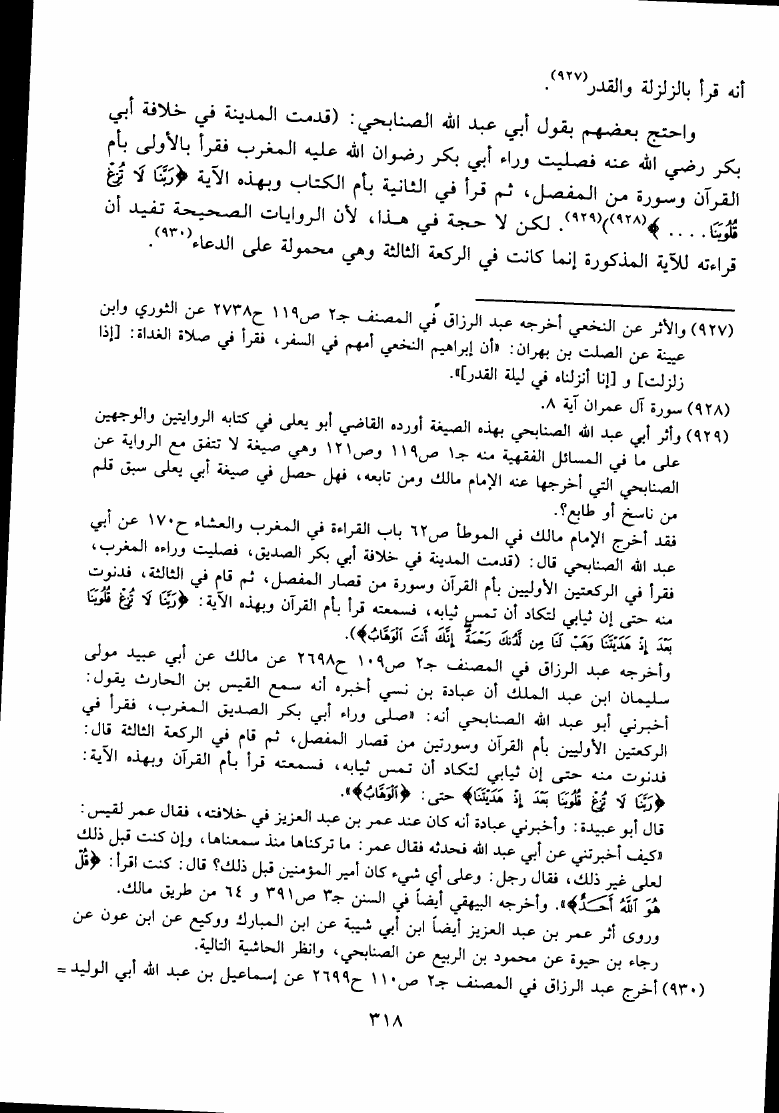 أنه قرأ بالزلزلة والقدر(٩٢٧).
واحتج بعضهم بقول أبي عبد الله الصنابحي: (قدمت المدينة في خلافة أبي
بكر رضي الله عنه فصليت وراء أبي بكر رضوان الله عليه المغرب فقرأ بالأولى بأم
القرآن وسورة من المفصل، ثم قرأ في الثانية بأم الكتاب وبهذه الآية ﴿رَبَّنَا لَا تُزِغْ
قُلُوبَنَا.... ﴾(٩٢٨))(٩٢٩). لكن لا حجة في هذا، لأن الروايات الصحيحة تفيد أن
قراءته للآية المذكورة إنما كانت في الركعة الثالثة وهي محمولة على الدعاء(٩٣٠).
(٩٢٧) والأثر عن النخعي أخرجه عبد الرزاق في المصنف جـ٢ ص١١٩ ح٢٧٣٨ عن الثوري وابن
عيينة عن الصلت بن بهران: «أن إبراهيم النخعي أمهم في السفر، فقرأ في صلاة الغداة: [إذا
زلزلت] و [إنا أنزلناه في ليلة القدر]».
(٩٢٨) سورة آل عمران آية ٨.
(٩٢٩) وأثر أبي عبد الله الصنابحي بهذه الصيغة أورده القاضي أبو يعلى في كتابه الروايتين والوجهين
على ما في المسائل الفقهية منه جـ١ ص١١٩ وص١٢١ وهي صيغة لا تتفق مع الرواية عن
الصنابحي التي أخرجها عنه الإمام مالك ومن تابعه، فهل حصل في صيغة أبي يعلى سبق قلم
من ناسخ أو طابع؟.
فقد أخرج الإمام مالك في الموطأ ص٦٢ باب القراءة في المغرب والعشاء ح١٧٠ عن أبي
عبد الله الصنابحي قال: (قدمت المدينة في خلافة أبي بكر الصديق، فصليت وراءه المغرب،
فقرأ في الركعتين الأوليين بأم القرآن وسورة من قصار المفصل، ثم قام في الثالثة، فدنوت
منه حتى إن ثيابي لتكاد أن تمس ثيابه، فسمعته قرأ بأم القرآن وبهذه الآية: ﴿رَبَّنَا لَا تُزِغْ قُلُوبَنَا
بَعْدَ إِذْ هَدَيْتَنَا وَهَبْ لَنَا مِن لَّدُنكَ رَحْمَةً إِنَّكَ أَنتَ ٱلْوَهَّابُ﴾).
وأخرجه عبد الرزاق في المصنف جـ٢ ص١٠٩ ح٢٦٩٨ عن مالك عن أبي عبيد مولى
سليمان ابن عبد الملك أن عبادة بن نسي أخبره أنه سمع القيس بن الحارث يقول:
أخبرني أبو عبد الله الصنابحي أنه: «صلى وراء أبي بكر الصديق المغرب، فقرأ في
الركعتين الأوليين بأم القرآن وسورتين من قصار المفصل، ثم قام في الركعة الثالثة قال:
فدنوت منه حتى إن ثيابي لتكاد أن تمس ثيابه، فسمعته قرأ بأم القرآن وبهذه الآية:
﴿رَبَّنَا لَا تُزِغْ قُلُوبَنَا بَعْدَ إِذْ هَدَيْتَنَا﴾ حتى: ﴿ٱلْوَهَّابُ﴾».
قال أبو عبيدة: وأخبرني عبادة أنه كان عند عمر بن عبد العزيز في خلافته، فقال عمر لقيس:
«كيف أخبرتني عن أبي عبد الله فحدثه فقال عمر: ما تركناها منذ سمعناها، وإن كنت قبل ذلك
لعلى غير ذلك، فقال رجل: وعلى أي شيء كان أمير المؤمنين قبل ذلك؟ قال: كنت اقرأ: ﴿قُلْ
هُوَ ٱللَّهُ أَحَدٌ﴾». وأخرجه البيهقي أيضاً في السنن جـ٣ ص٣٩١ و ٦٤ من طريق مالك.
وروى أثر عمر بن عبد العزيز أيضاً ابن أبي شيبة عن ابن المبارك ووكيع عن ابن عون عن
رجاء بن حيوة عن محمود بن الربيع عن الصنابحي، وانظر الحاشية التالية.
(٩٣٠) أخرج عبد الرزاق في المصنف جـ٢ ص١١٠ ح٢٦٩٩ عن إسماعيل بن عبد الله أبي الوليد =
٣١٨